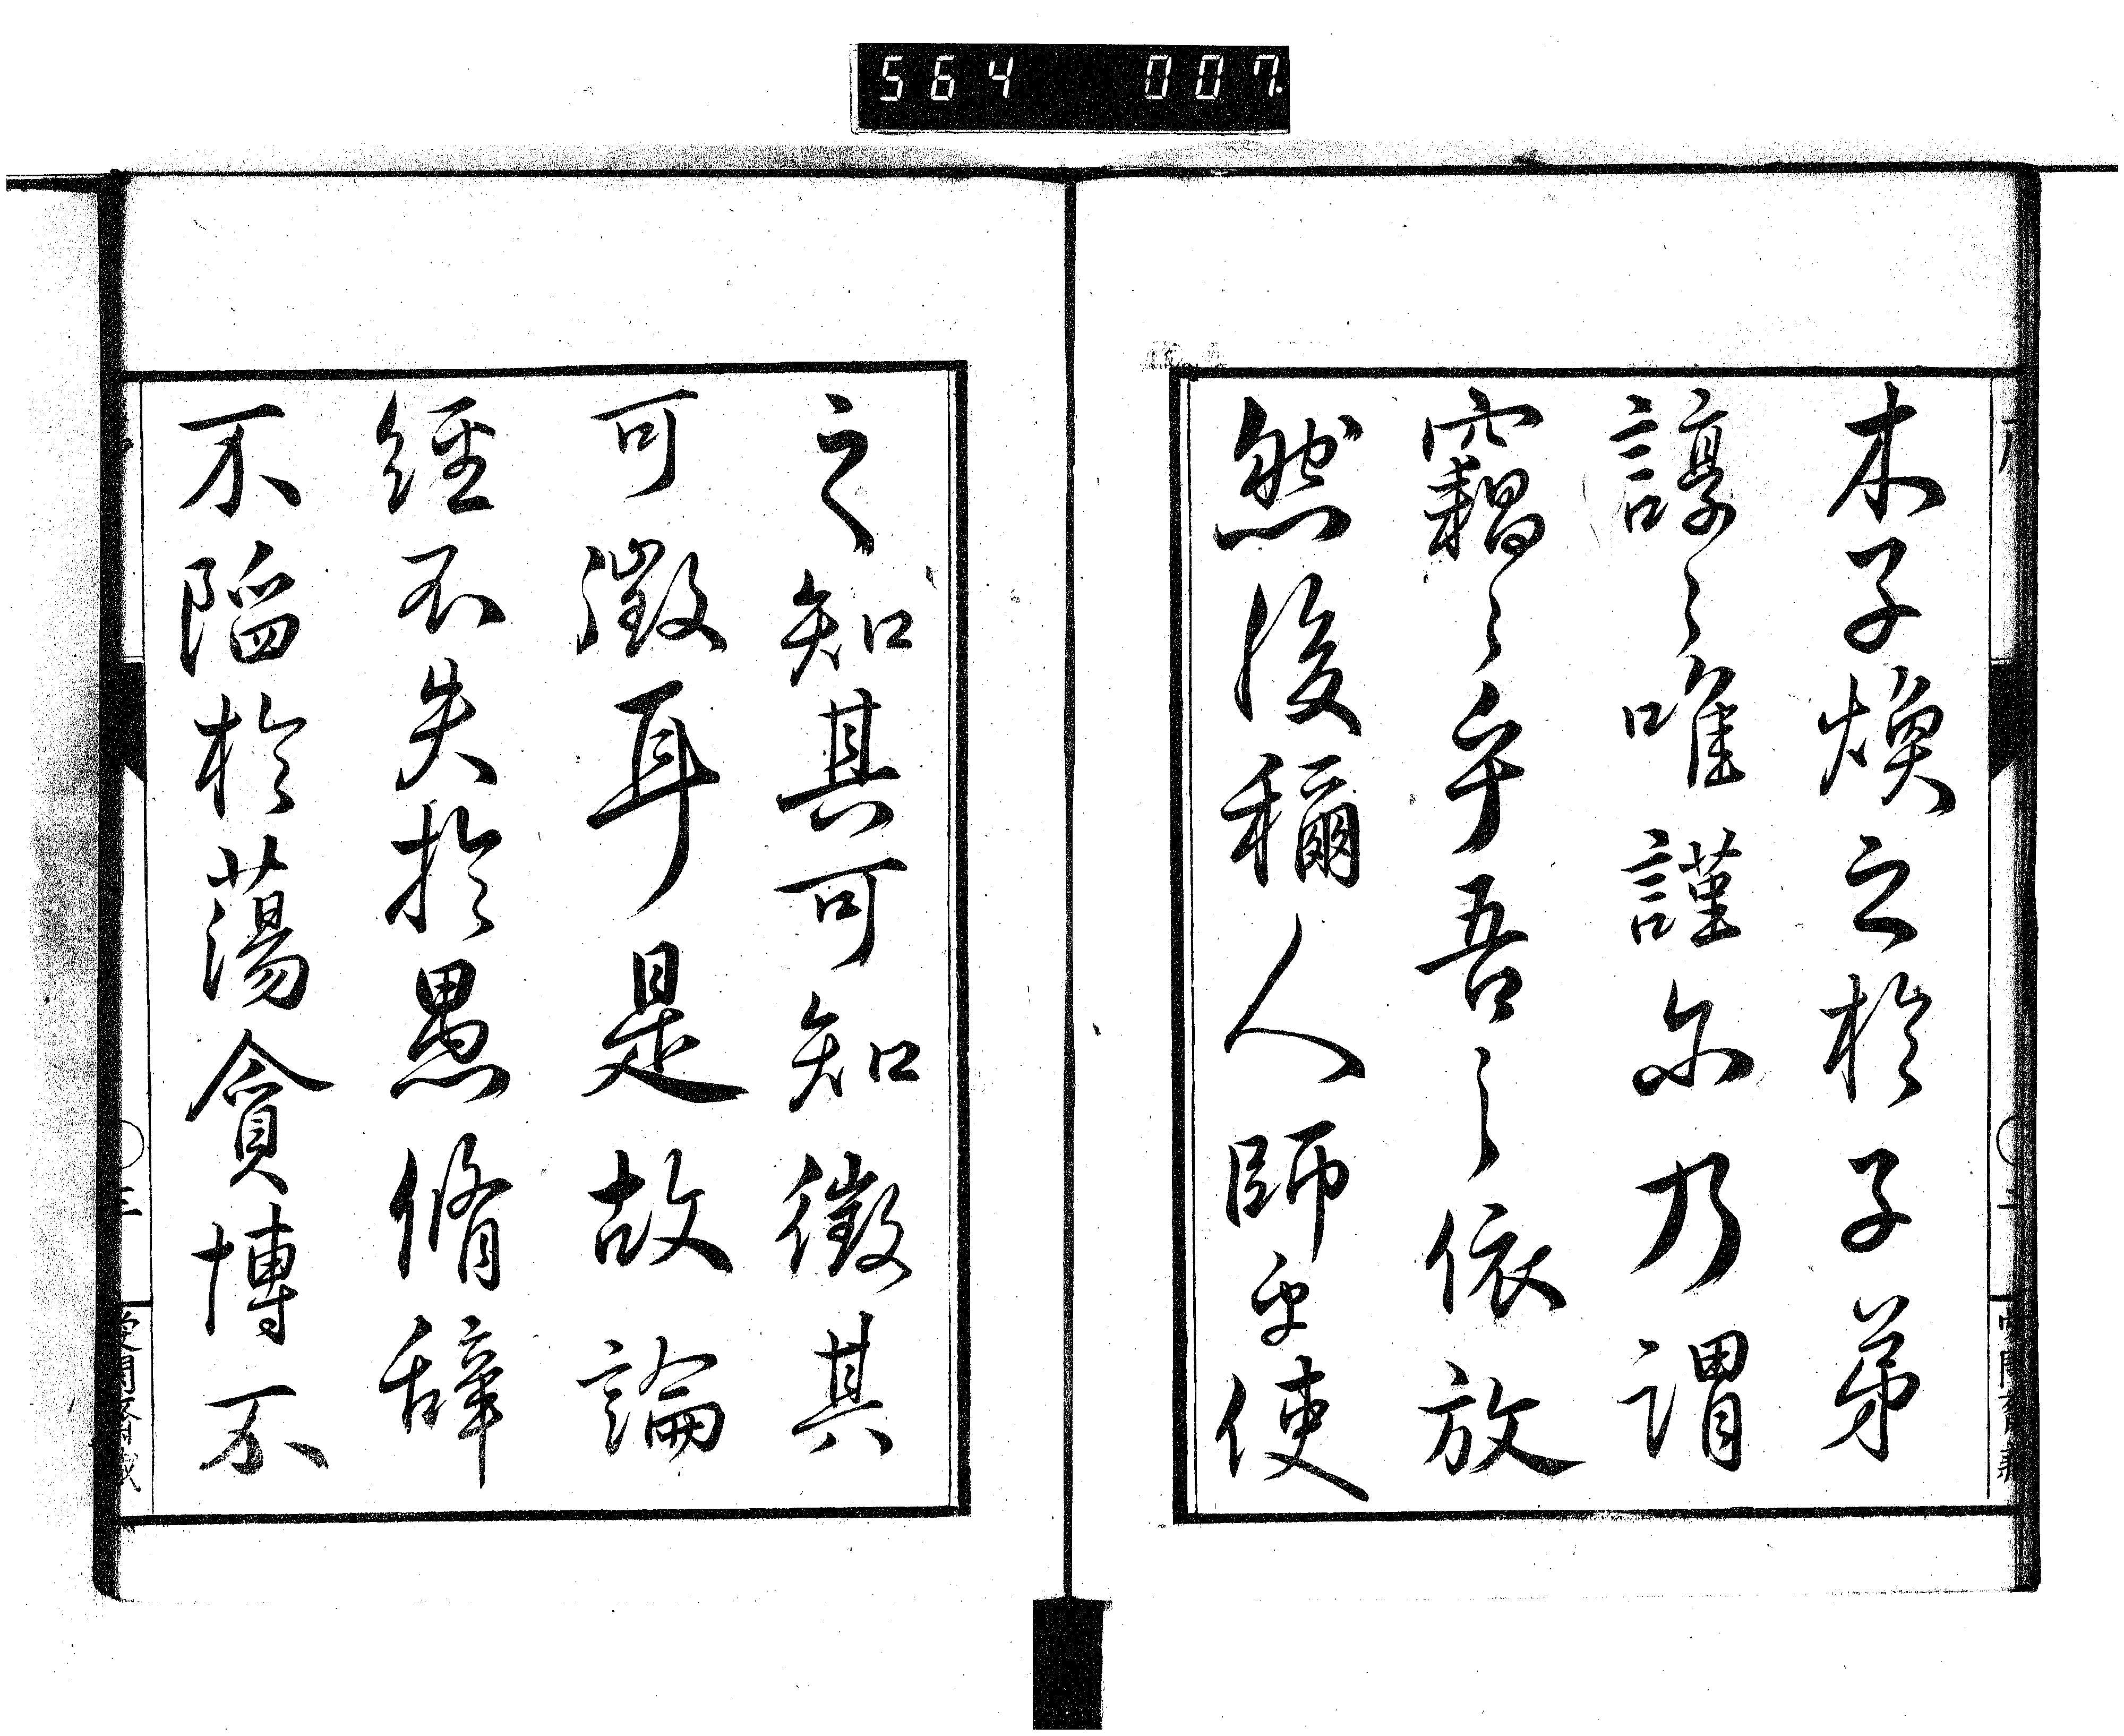 564 007
木子煥之於子弟
諄〻唯謹尓乃謂
竊〻乎吾〻依放
然後稱人師乎使
之知其可知徵其
可徵耳是故論
經不失於愚脩辞
不陷於蕩貪博不
三